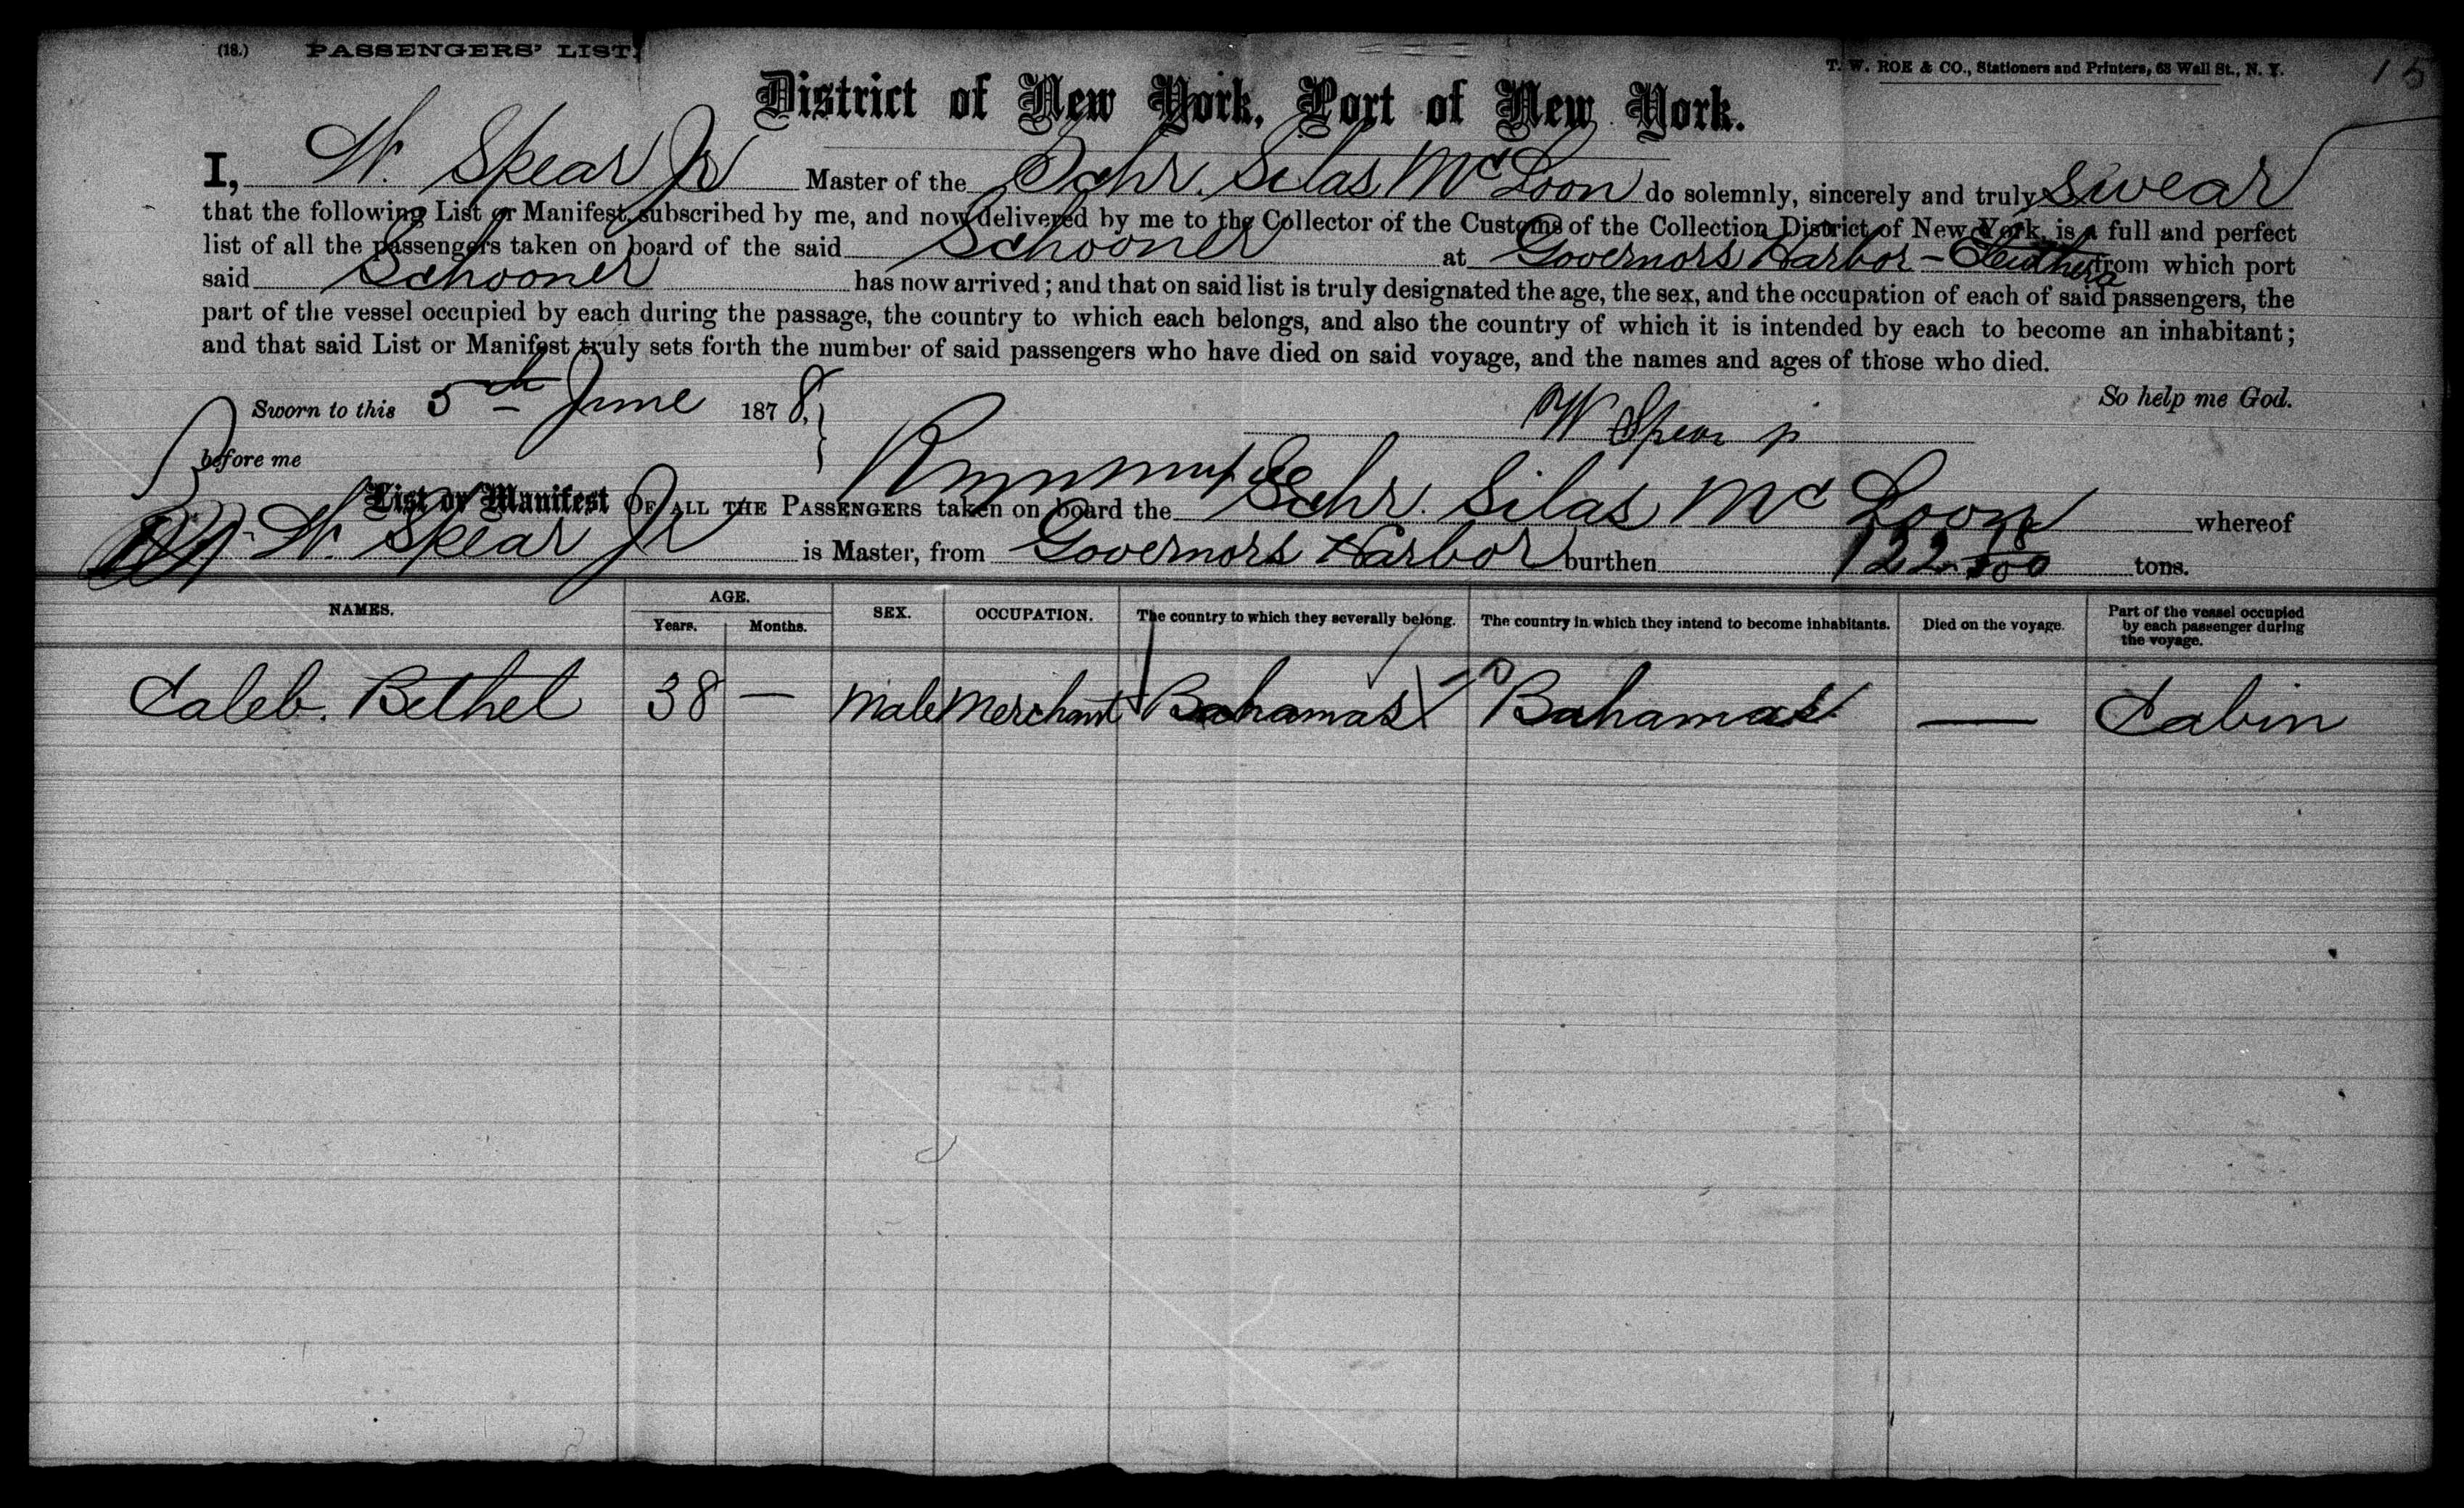 (18.) PASSENGERS' LIST.
T. W. ROE & CO., Stationers and Printers, 63 Wall St., N. Y.
15
District of New York, Port of New York.
I, W. Spear Jr Master of the Schr. Silas McLoon do solemnly, sincerely and truly swear
that the following List or Manifest, subscribed by me, and now delivered by me to the Collector of the Customs of the Collection District of New York, is a full and perfect
list of all the passengers taken on board of the said Schooner at Governors Harbor - Eleuthera from which port
said Schooner has now arrived; and that on said list is truly designated the age, the sex, and the occupation of each of said passengers, the
part of the vessel occupied by each during the passage, the country to which each belongs, and also the country of which it is intended by each to become an inhabitant;
and that said List or Manifest truly sets forth the number of said passengers who have died on said voyage, and the names and ages of those who died.
So help me God.
Sworn to this 5th June 1878.
W Spear jr
before me
List or Manifest OF ALL THE PASSENGERS taken on board the Schr. Silas McLoon whereof
W. Spear Jr is Master, from Governors Harbor burthen 122 78/100 tons.
NAMES. AGE. Years. Months. SEX. OCCUPATION. The country to which they severally belong. The country in which they intend to become inhabitants. Died on the voyage. Part of the vessel occupied by each passenger during the voyage.
Caleb. Bethel 38 — Male Merchant Bahamas Bahamas — Cabin